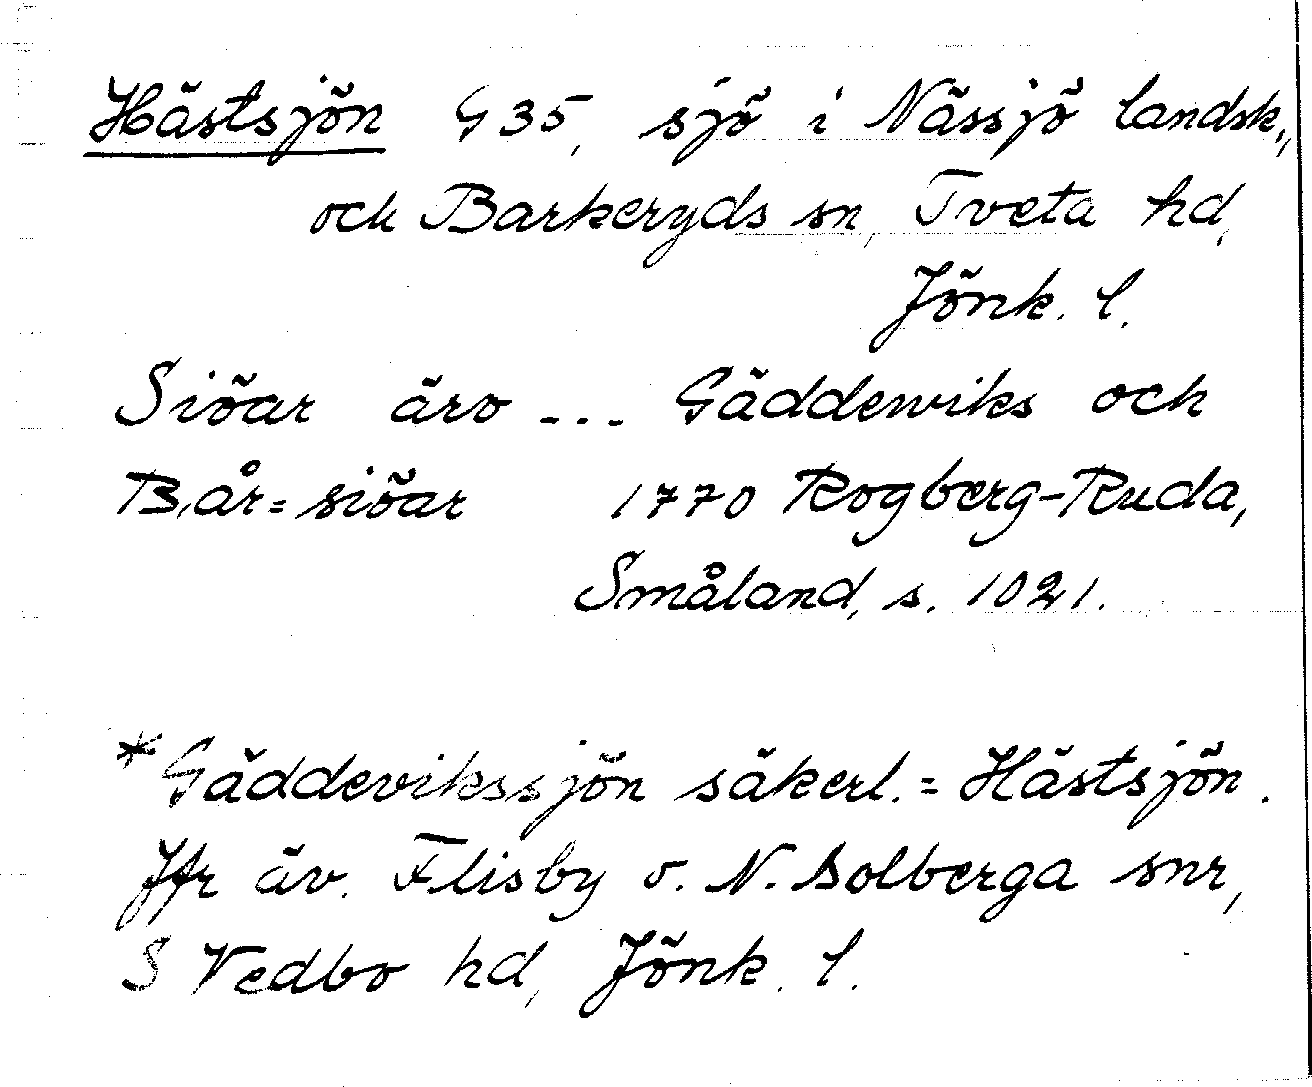 Hästsjön G 35, sjö i Nässjö landsk.,
och Barkeryds sn, Tveta hd,
Jönk. l.
Siöar äro --- Gäddewiks och
Bår=siöar 1770 Rogberg-Ruda,
Småland, s. 1021.
*Gäddevikssjön säkerl. = Hästsjön.
Jfr äv. Flisby o. N. Solberga snr,
S Vedbo hd, Jönk. l.